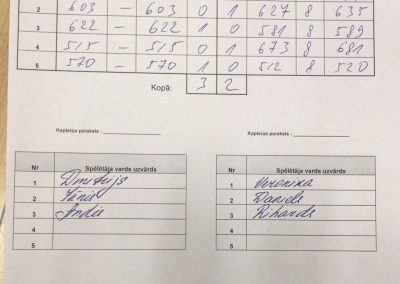 2 603 – 603 0 1 627 8 635
3 622 – 622 1 0 581 8 589
4 515 – 515 0 1 673 8 681
5 570 – 570 1 0 512 8 520
Kopā: 3 2
Kapteiņa paraksts : Kapteiņa paraksts :
Nr Spēlētāja vards uzvārds
1 Dmitrijs
2 Jānis
3 Andis
4
5
Nr Spēlētāja vards uzvārds
1 Veronika
2 Daniels
3 Rihards
4
5